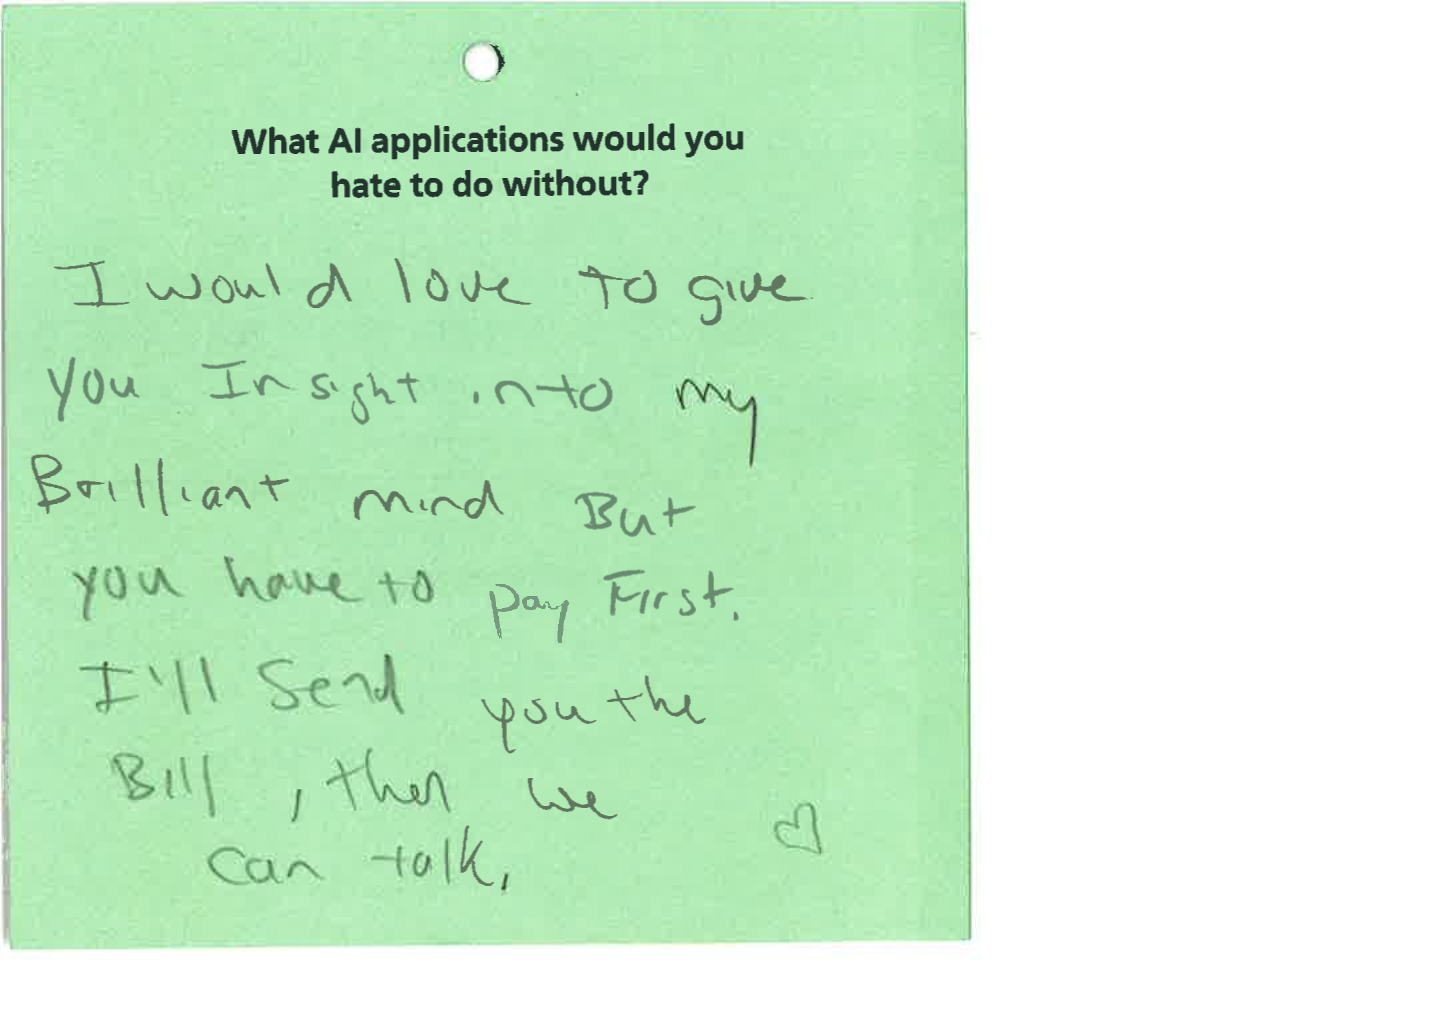 What AI applications would you
hate to do without?
I would love to give
you Insight into my
Brilliant mind But
you have to pay First.
I'll Send you the
Bill, then we
Can talk,